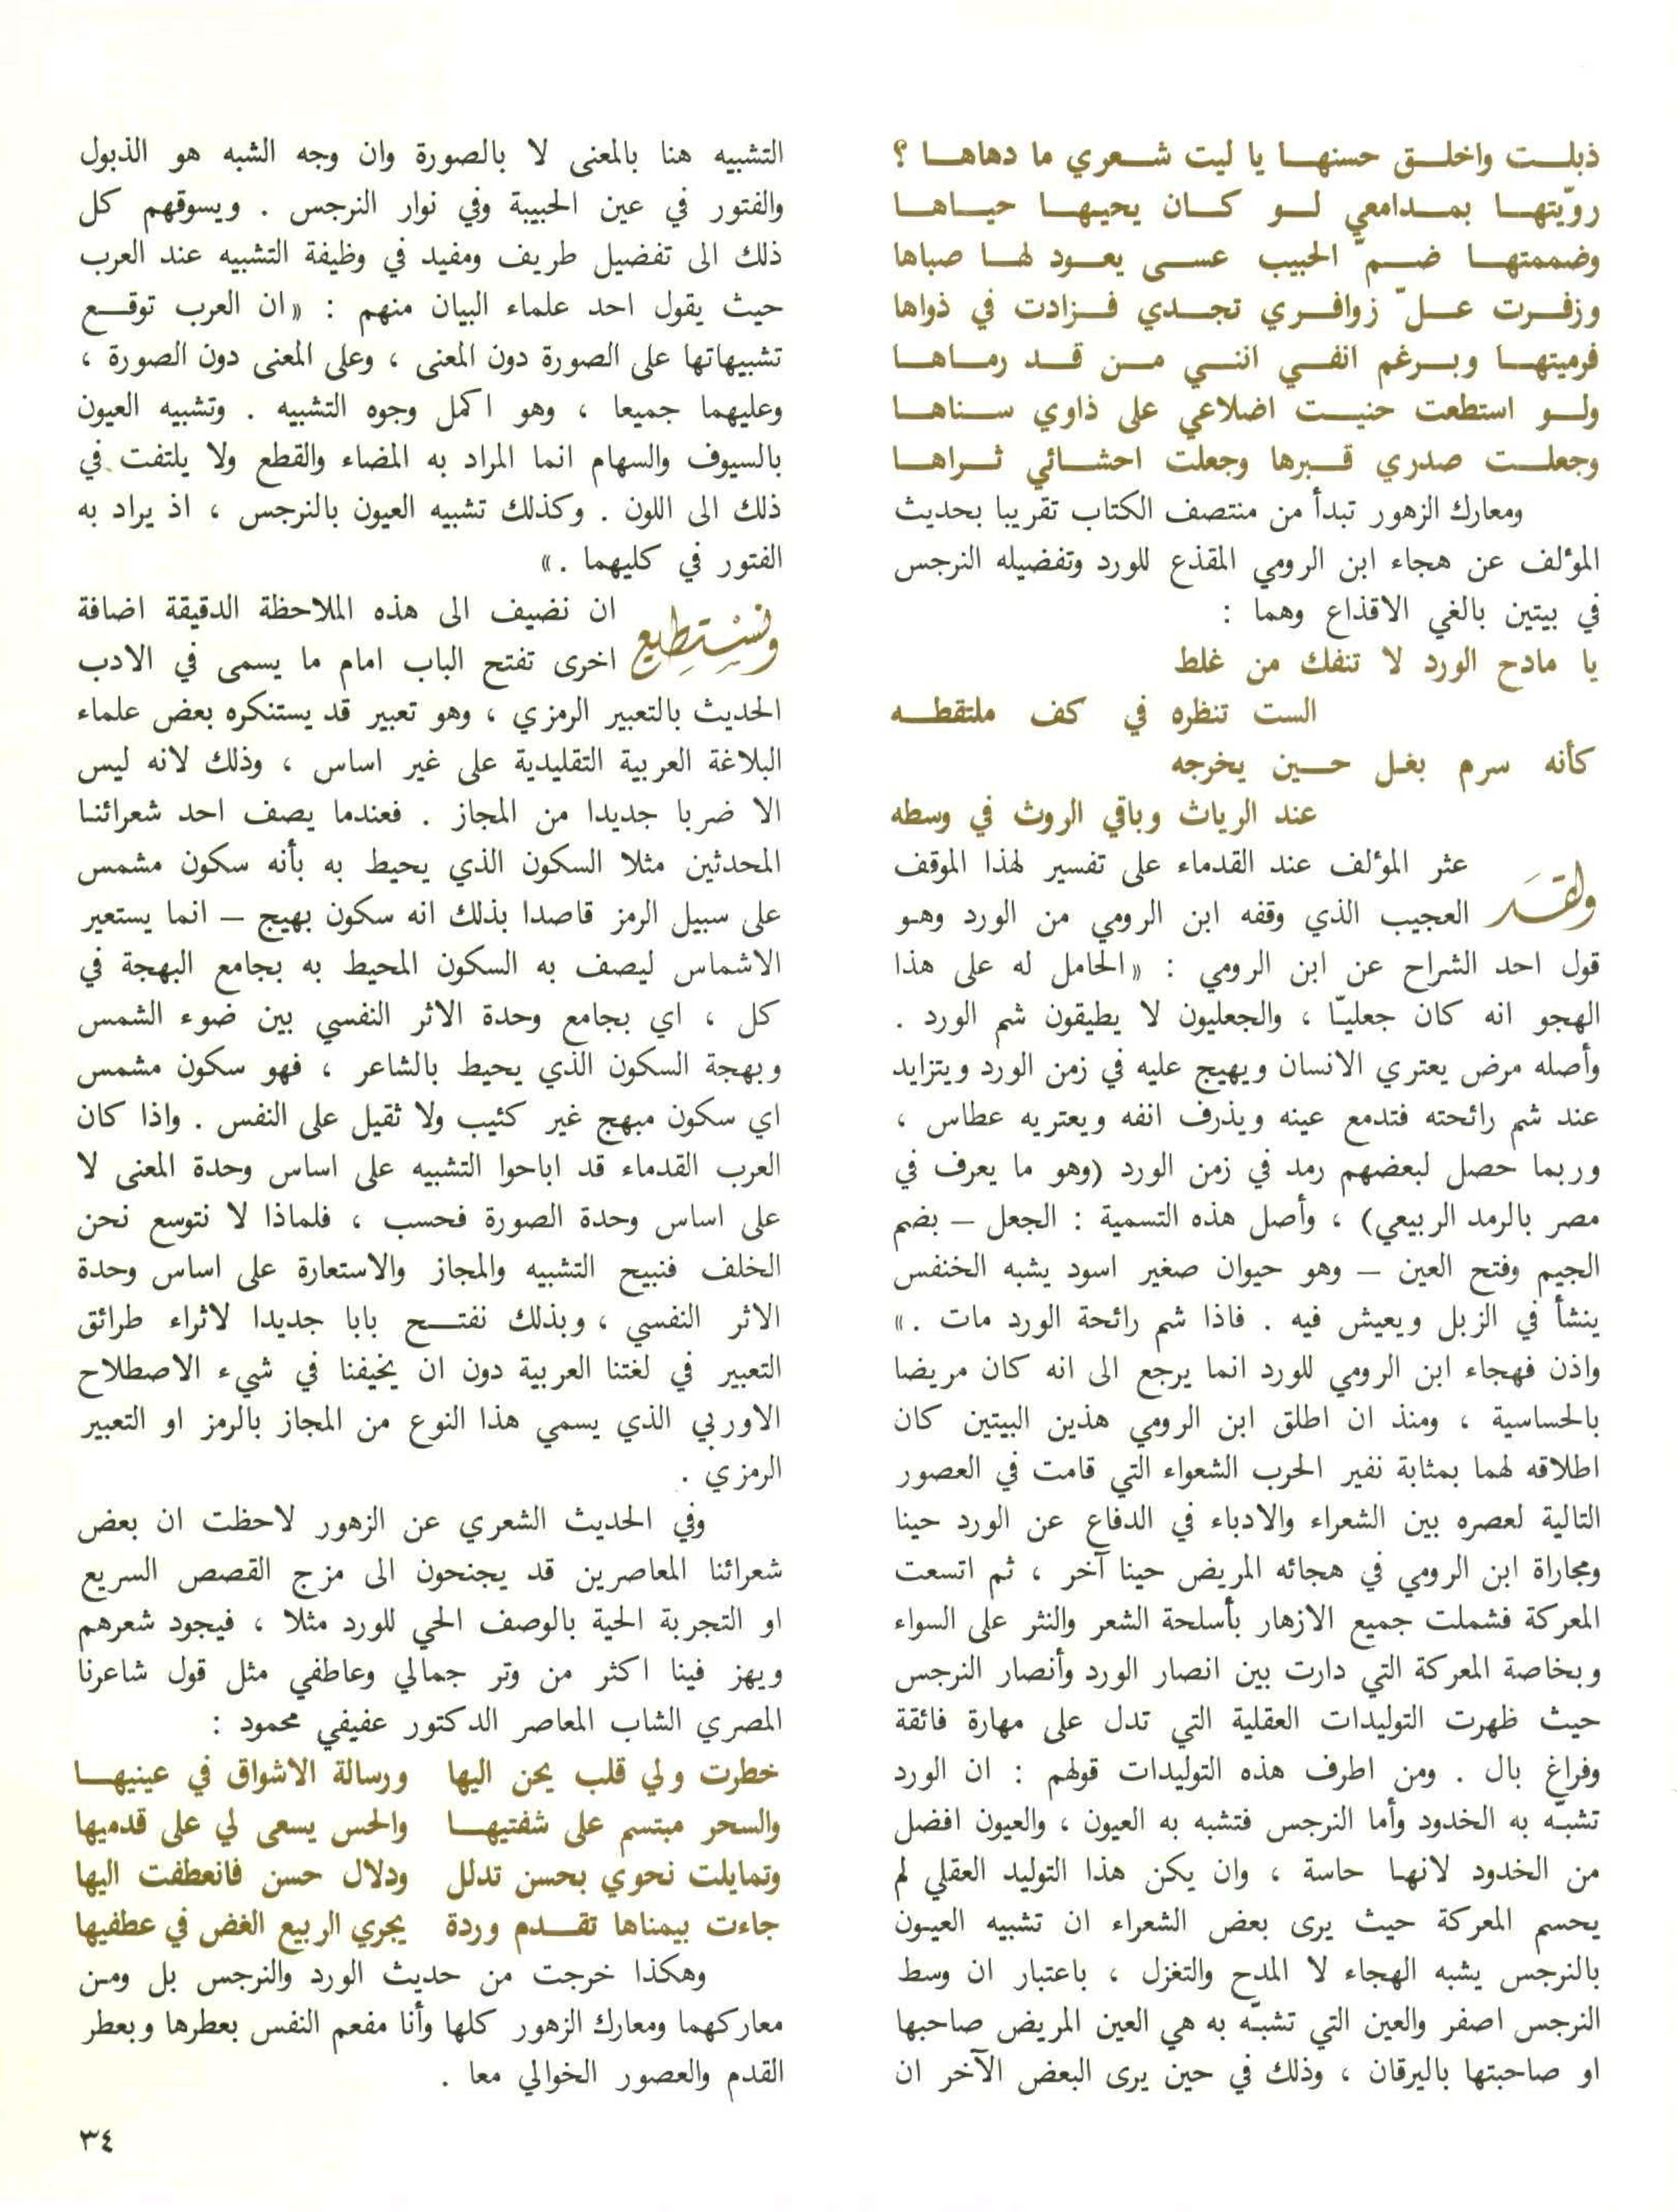 ذبلت واخلق حسنها يا ليت شعري ما دهاها ؟
روّيتها بمدامعي لو كان يحيها حياها
وضممتها ضمّ الحبيب عسى يعود لها صباها
وزفرت علّ زوافري تجدي فزادت في ذواها
فرميتها وبرغم انفي انني من قد رماها
ولو استطعت حنيت اضلاعي على ذاوي سناها
وجعلت صدري قبرها وجعلت احشائي ثراها
ومعارك الزهور تبدأ من منتصف الكتاب تقريبا بحديث
المؤلف عن هجاء ابن الرومي المقذع للورد وتفضيله النرجس
في بيتين بالغي الاقذاع وهما :
يا مادح الورد لا تنفك من غلط
الست تنظره في كف ملتقطه
كأنه سرم بغل حين يخرجه
عند الرياث وباقي الروث في وسطه
ولقد عثر المؤلف عند القدماء على تفسير لهذا الموقف
العجيب الذي وقفه ابن الرومي من الورد وهو
قول احد الشراح عن ابن الرومي : «الحامل له على هذا
الهجو انه كان جعليّا ، والجعليون لا يطيقون شم الورد .
وأصله مرض يعتري الانسان ويهيج عليه في زمن الورد ويتزايد
عند شم رائحته فتدمع عينه ويذرف انفه ويعتريه عطاس ،
وربما حصل لبعضهم رمد في زمن الورد (وهو ما يعرف في
مصر بالرمد الربيعي) ، وأصل هذه التسمية : الجعل – بضم
الجيم وفتح العين – وهو حيوان صغير اسود يشبه الخنفس
ينشأ في الزبل ويعيش فيه . فاذا شم رائحة الورد مات .»
واذن فهجاء ابن الرومي للورد انما يرجع الى انه كان مريضا
بالحساسية ، ومنذ ان اطلق ابن الرومي هذين البيتين كان
اطلاقه لهما بمثابة نفير الحرب الشعواء التي قامت في العصور
التالية لعصره بين الشعراء والادباء في الدفاع عن الورد حينا
ومجاراة ابن الرومي في هجائه المريض حينا آخر ، ثم اتسعت
المعركة فشملت جميع الازهار بأسلحة الشعر والنثر على السواء
وبخاصة المعركة التي دارت بين انصار الورد وأنصار النرجس
حيث ظهرت التوليدات العقلية التي تدل على مهارة فائقة
وفراغ بال . ومن اطرف هذه التوليدات قولهم : ان الورد
تشبّه به الخدود وأما النرجس فتشبه به العيون ، والعيون افضل
من الخدود لانها حاسة ، وان يكن هذا التوليد العقلي لم
يحسم المعركة حيث يرى بعض الشعراء ان تشبيه العيون
بالنرجس يشبه الهجاء لا المدح والتغزل ، باعتبار ان وسط
النرجس اصفر والعين التي تشبّه به هي العين المريض صاحبها
او صاحبتها باليرقان ، وذلك في حين يرى البعض الآخر ان
التشبيه هنا بالمعنى لا بالصورة وان وجه الشبه هو الذبول
والفتور في عين الحبيبة وفي نوار النرجس . ويسوقهم كل
ذلك الى تفضيل طريف ومفيد في وظيفة التشبيه عند العرب
حيث يقول احد علماء البيان منهم : «ان العرب توقع
تشبيهاتها على الصورة دون المعنى ، وعلى المعنى دون الصورة ،
وعليهما جميعا ، وهو اكمل وجوه التشبيه . وتشبيه العيون
بالسيوف والسهام انما المراد به المضاء والقطع ولا يلتفت في
ذلك الى اللون . وكذلك تشبيه العيون بالنرجس ، اذ يراد به
الفتور في كليهما .»
ونستطيع ان نضيف الى هذه الملاحظة الدقيقة اضافة
اخرى تفتح الباب امام ما يسمى في الادب
الحديث بالتعبير الرمزي ، وهو تعبير قد يستنكره بعض علماء
البلاغة العربية التقليدية على غير اساس ، وذلك لانه ليس
الا ضربا جديدا من المجاز . فعندما يصف احد شعرائنا
المحدثين مثلا السكون الذي يحيط به بأنه سكون مشمس
على سبيل الرمز قاصدا بذلك انه سكون بهيج – انما يستعير
الاشماس ليصف به السكون المحيط به بجامع البهجة في
كل ، اي بجامع وحدة الاثر النفسي بين ضوء الشمس
وبهجة السكون الذي يحيط بالشاعر ، فهو سكون مشمس
اي سكون مبهج غير كئيب ولا ثقيل على النفس . واذا كان
العرب القدماء قد اباحوا التشبيه على اساس وحدة المعنى لا
على اساس وحدة الصورة فحسب ، فلماذا لا نتوسع نحن
الخلف فنبيح التشبيه والمجاز والاستعارة على اساس وحدة
الاثر النفسي ، وبذلك نفتح بابا جديدا لاثراء طرائق
التعبير في لغتنا العربية دون ان يخيفنا في شيء الاصطلاح
الاوربي الذي يسمي هذا النوع من المجاز بالرمز او التعبير
الرمزي .
وفي الحديث الشعري عن الزهور لاحظت ان بعض
شعرائنا المعاصرين قد يجنحون الى مزج القصص السريع
او التجربة الحية بالوصف الحي للورد مثلا ، فيجود شعرهم
ويهز فينا اكثر من وتر جمالي وعاطفي مثل قول شاعرنا
المصري الشاب المعاصر الدكتور عفيفي محمود :
خطرت ولي قلب يحن اليها ورسالة الاشواق في عينيها
والسحر مبتسم على شفتيها والحس يسعى لي على قدميها
وتمايلت نحوي بحسن تدلل ودلال حسن فانعطفت اليها
جاءت بيمناها تقدم وردة يجري الربيع الغض في عطفيها
وهكذا خرجت من حديث الورد والنرجس بل ومن
معاركهما ومعارك الزهور كلها وأنا مفعم النفس بعطرها وبعطر
القدم والعصور الخوالي معا .
٣٤